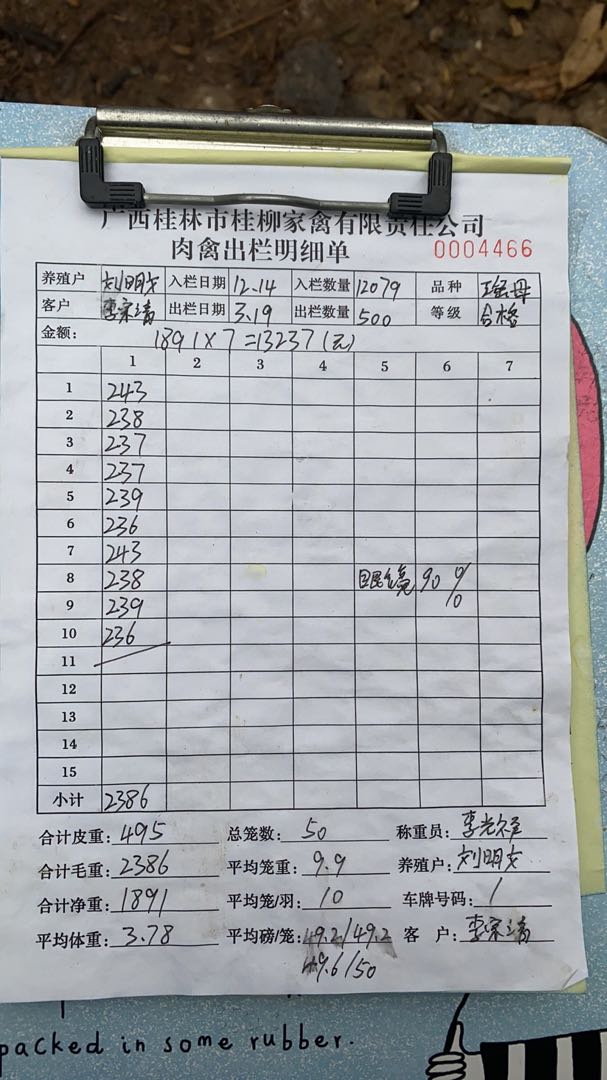 广西桂林市桂柳家禽有限责任公司
肉禽出栏明细单 0004466
养殖户 刘明文 入栏日期 12.14 入栏数量 12079 品种
客户 李宗靖 出栏日期 3.19 出栏数量 500 等级 合格
金额: 1891×7=13237(元)
1 2 3 4 5 6 7
1 243
2 238
3 237
4 237
5 239
6 236
7 243
8 238 90%
9 239
10 236
11
12
13
14
15
小计 2386
合计皮重: 495 总笼数: 50 称重员:
合计毛重: 2386 平均笼重: 9.9 养殖户: 刘明文
合计净重: 1891 平均笼/羽: 10 车牌号码: 1
平均体重: 3.78 平均磅/笼: 49.2/49.2 客 户: 李宗靖
49.6/50
packed in some rubber.